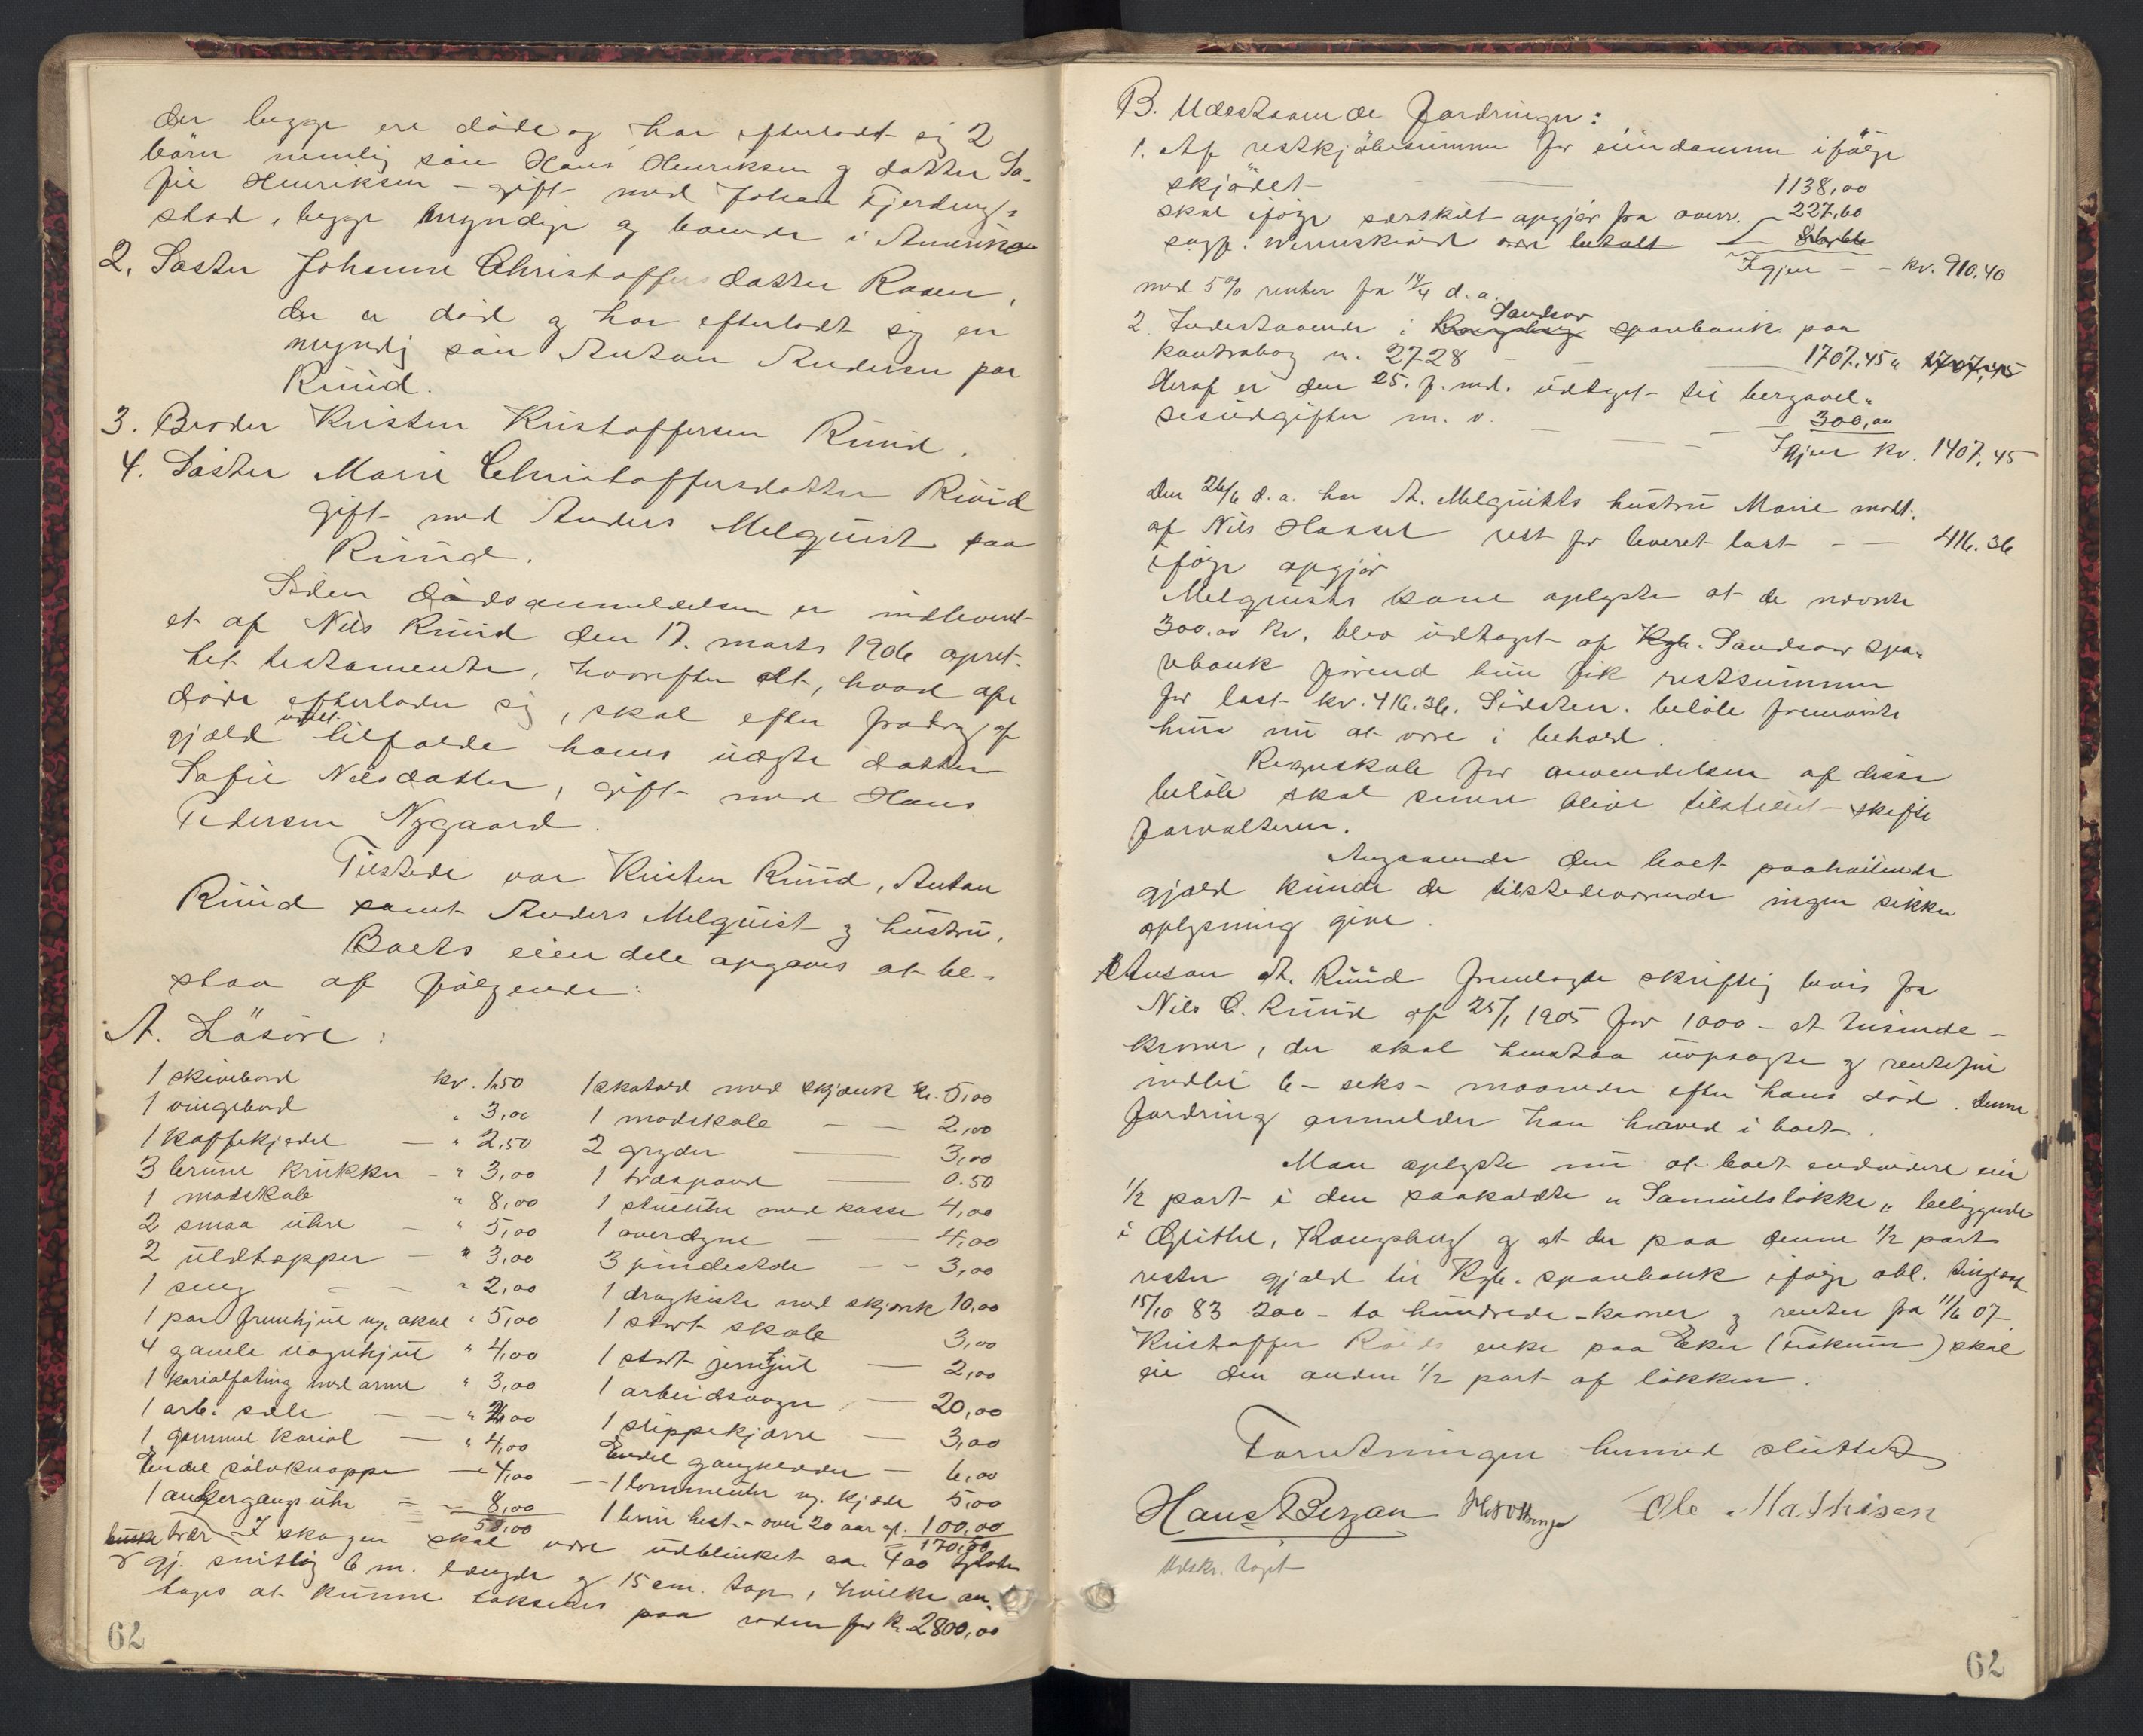 der begge ere døde og har efterladt sig 2
börn nemlig sön Hans Henriksen og datter So-
fie Henriksen - gift med Johan Fjerdings-
stad, begge myndige og boende i Amerika
2. Söster Johanne Christoffersdatter Raaen,
der er död og har efterladt sig en
myndig sön Anton Andersen paa
Ruud.
3. Broder Kristen Kristoffersen Ruud.
4. Söster Marie Christoffersdatter Ruud
gift med Anders Melquist paa
Ruud.
Siden dödsanmeldelsen er indlevert
et af Nils Ruud den 17. marts 1906 opret-
tet testamente, hvorefter alt, hvad af-
döde efterlader sig, skal efter fradrag af
gjæld tilfalde hans uægte datter
Sofie Nilsdatter, gift med Hans
Pedersen Nygaard.
Tilstede var Kristen Ruud, Anton
Ruud samt Anders Melquist og hustru.
Boets eiendele opgaves at be-
staa af fölgende:
A. Lösöre:
1 skivebord kr. 1,50 1 skatold med skjænk kr. 5,00
1 vingebord " 3,00 1 madskole — — 2,00
1 kaffekjedel — " 2,50 2 gryder — 3,00
3 brune krukker - " 3,00 1 træspand — 0.50
1 madskab " 8,00 1 stueuhr med kasse 4,00
2 smaa uhre — " 5,00 1 overdyne — — 4,00
2 uldtepper — " 3,00 3 pindestole — - 3,00
1 seng — — " 2,00 1 dragkiste med skjænk 10,00
1 par fremhjul ny. aksel " 5,00 1 stort skab 3,00
4 gamle vognhjul " 4,00 1 stort jernhjul — 2,00
1 karjolfating med arme " 3,00 1 arbeidsvogn — 20,00
1 arb. sele — — " 2,00 1 slippekjærre — 3,00
1 gammel kariol — " 4,00 Endel gangklæder — 6,00
Endel sölvknapper — 4,00 — 1 lommeuhr og kjæde 5,00
1 ankergangs uhr = - 8,00 1 brun hest - over 20 aar gl. 100,00
58,00 = 170,50
trær I skogen skal være udblinket ca. 400
gj. snitlig 6 m. længde og 15 cm. top, hvilke an-
tages at kunne takseres paa roden for kr. 2800,00
62
B. Udestaaende Fordringer:
1. Af restkjöbesummen for eiendommen ifölge
skjödet — 1138,00
skal ifölge særskilt opgjör fra overr. — 227,60
sagf. Wennskiöld være betalt
Igjen - - kr. 910.40
med 5% renter fra 14/4 d. a.
Sandsvær
2. Indestaaende i Kongsberg sparebank paa
kontrabog n. 2728 - — 1707.45 " 1707,45
Heraf er den 25. f. md. udtaget til begravel-
sesudgifter m. v. — — — 300,00
Igjen kr. 1407,45
Den 26/6 d. a. har A. Melquists hustru Marie modt.
af Nils Hassel rest for leveret last - — 416.36
ifölge opgjör
Melquists kone oplyste at de nævnte
300.00 kr. blev udtaget af Kgb. Sandsvær spa-
rebank förend hun fik restsummen
for last kr. 416.36. Sidstn. belöb fremviste
hun nu at være i behold.
Regnskab for anvendelsen af disse
belöb skal senere blive tilstillet skifte
forvalteren.
Angaaende den boet paahvilende
gjæld kunde de tilstedeværende ingen sikker
oplysning give.
Anton A. Ruud fremlagde skriftlig bevis fra
Nils C. Ruud af 25/1 1905 for 1000 - et tusinde -
kroner, der skal henstaa uopsagte og rentefrie
indtil 6 - seks - maaneder efter hans död. Denne
fordring anmelder han herved i boet.
Man oplyste nu at boet endvidere eier
1/2 part i den saakaldte "Samuelslökke" beliggende
i Glitre, Kongsberg og at der paa denne 1/2 part
rester gjæld til Kgb. sparebank ifölge obl. tinglæst
15/10 83 200 - to hundrede - kroner og renter fra 11/6 07-
Kristoffer Ruuds enke paa Eker (Fiskum) skal
eie den anden 1/2 part af lökken.
Forretningen hermed sluttet
Hans Berzan Ole Mathisen
Udskr. taget
62